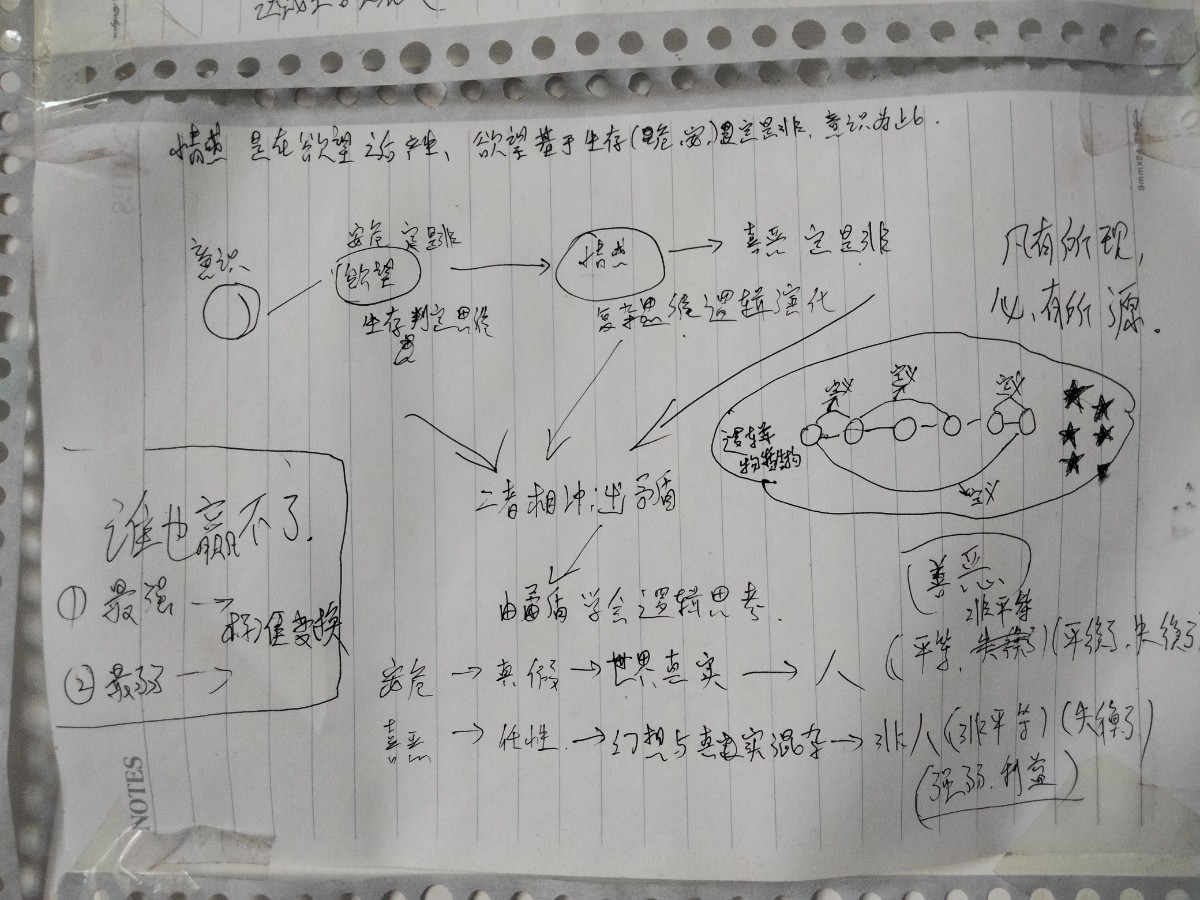 情感 是在欲望之后产生、欲望基于生存(危、安)定是非、意识为此
意识
安危 定是非
欲望
生存判定思维
情感
喜恶 定是非
复杂思维逻辑演化
凡有所现,
必有所源.
定义
定义
定义
逻辑
定义
二者相冲,矛盾
由矛盾学会逻辑思考.
谁也赢不了.
① 最强 →
标准变换
② 最弱 →
善恶
非平等
安危 → 真假 → 世界真实 → 人 (平等、)(平衡了、失衡了
喜恶 → 任性 → 幻想与真实混杂 → 非人 (非平等)(失衡了)
(强弱、利益)
NOTES